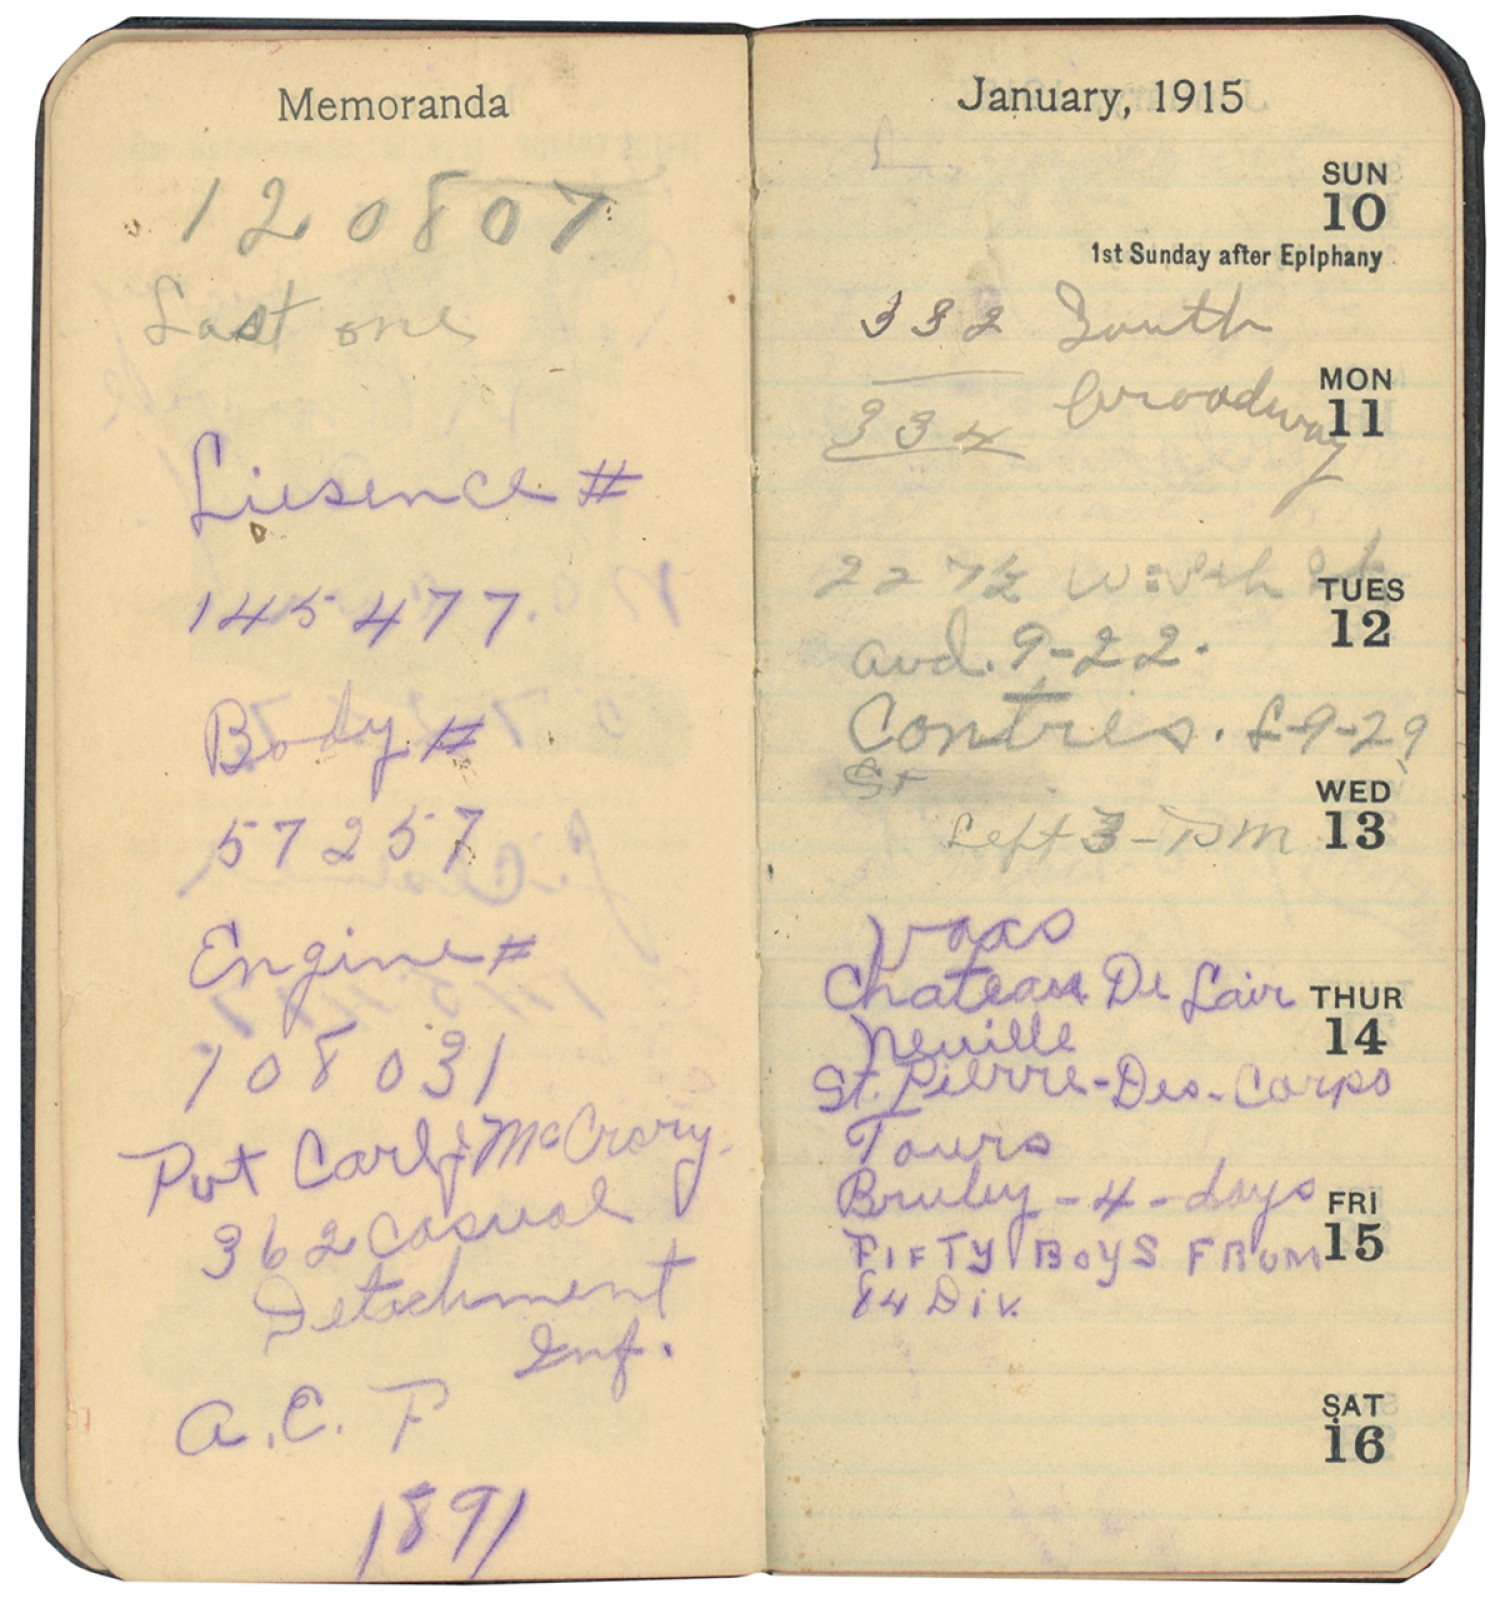 Memoranda
120807
Last one
Liesence #
145477.
Body #
57257
Engine #
108031
Pvt Carl J McCrory.
362 Casual
Detachment
Inf.
A. E. F
1891
January, 1915
SUN
10
1st Sunday after Epiphany
332 South
334 broadway
MON
11
227½
TUES
12
avd. 9-22.
Contres. L-9-29
St
WED
13
Left 3-PM
Vaas
Chateau De Lair
THUR
14
Neuille
St. Pierre-Des-Corps
Tours
Bruley - 4 - days
FRI
15
FIFTY BOYS FROM
84 Div.
SAT
16